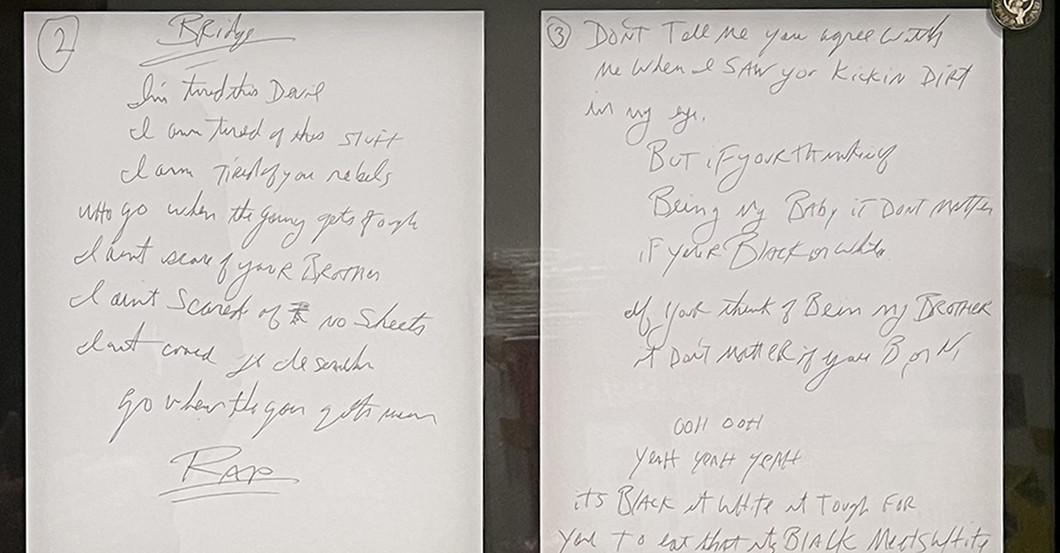 2
Bridge
I'm tired this Devil
I am tired of this stuff
I am Tired of you rebels
who go when the going gets tough
I aint scare of your Brother
I aint Scared of no Sheets
go when the gets mean
RAP
3 DONT Tell Me you agree with
Me When I SAW you Kickin DIRT
in my eye.
BuT iF your thinking
Being my BABy iT DonT matter
iF your BlAck or white
If your think of Bein my BROTHER
it Don't matter if your B or
OOH OOH
YeAH yeAH yeAH
it's BlAck it White it Tough FOR
you To that its BlAck Meets White